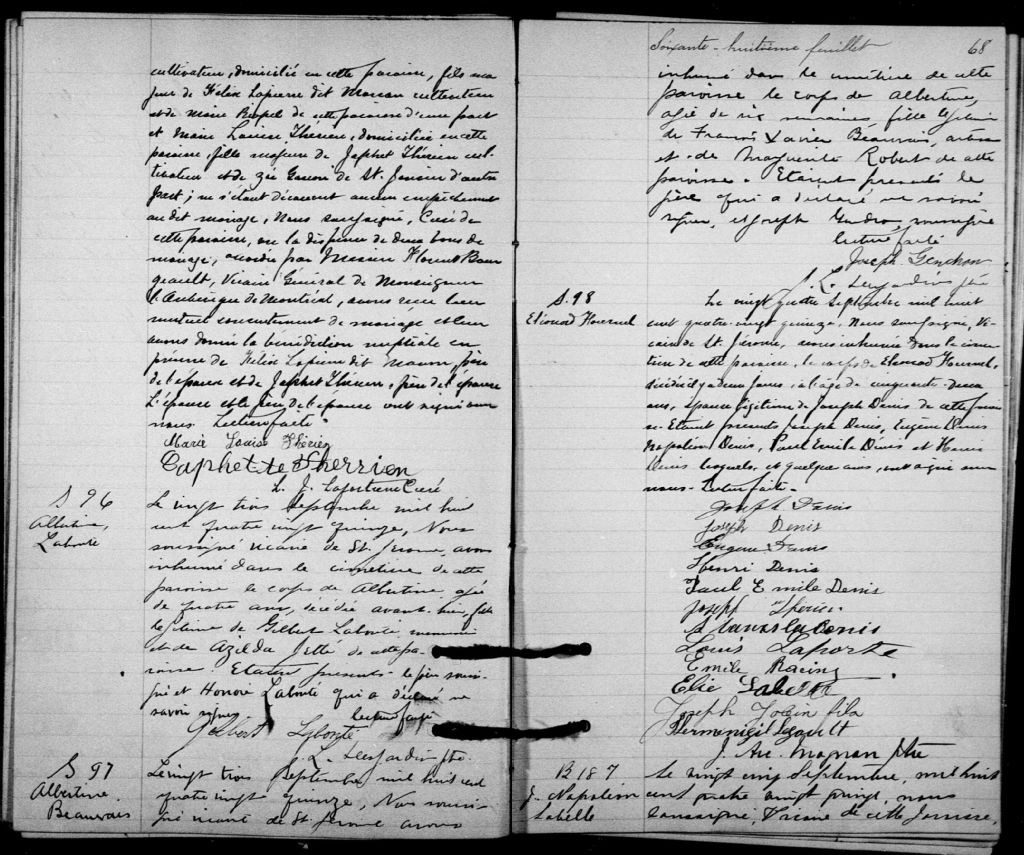 cultivateur, domicilié en cette paroisse, fils ma
jeur de Félix Lapierre dit Marsan cultivateur
et de Marie de cette paroisse d'une part
et Marie Louise Thérien, domiciliée en cette
paroisse, fille majeure de Japhet Thérien cul-
tivateur et de de St. Janvier d'autre
part; ne s'étant découvert aucun empêchement
au dit mariage, Nous soussigné, Curé de
cette paroisse, vu la dispense de deux bans de
mariage, accordée par Messire Florent Bour
geault, Vicaire Général de Monseigneur
l'Archevêque de Montréal, avons reçu leur
mutuel consentement de mariage et leur
avons donné la bénédiction nuptiale en
présence de Félix Lapierre dit Marsan, père
de l'époux et de Japhet Thérien, père de l'épouse
L'épouse et le père de l'épouse ont signé avec
nous. Lecture faite.
Marie Louise Thérien
Caphette Therrien
Curé
S 96
Albertine,
Labonté
Le vingt trois Septembre mil huit
cent quatre vingt quinze, Nous
soussigné vicaire de St. Jérome, avons
inhumé dans le cimetière de cette
paroisse le corps de Albertine, agée
de quatre ans, décédée avant-hier, fille
légitime de Gilbert Labonté, menuisier
et de Azilda Jetté de cette pa-
roisse Etaient presents le père soussi-
gné et Honoré Labonté qui a déclaré ne
savoir signer Lecture faite
Gelbert Lbonté
J. L. Desjardins Ptre.
S 97
Albertine
Beauvais
Le vingt trois Septembre mil huit cent
quatre vingt quinze, Nous soussi-
gné vicaire de St. Jérome avons
Soixante-huitième feuillet 68
inhumé dans le cimetière de cette
paroisse le corps de Albertine,
agée de six semaines, fille légitime
de François Xavier Beauvais,
et de Marguerite Robert de cette
paroisse. Etaient presents le
père qui a déclaré ne savoir
signer, et Joseph Gendron soussigné
lecture faite
Joseph Gendron
J. L. Desjardins Ptre
S. 98
Le vingt quatre Septembre mil huit
cent quatre-vingt quinze, Nous soussigné, Vi-
caire de St. Jérome, avons inhumé dans le cime-
tière de cette paroisse, le corps de
décédée il y a deux jours, à l'âge de cinquante-deux
ans, épouse légitime de Joseph Denis de cette parois-
se. Etaient presents Joseph Denis, Eugène Denis
Napoléon Denis, Paul Emile Denis et Henri
Denis lesquels, et quelques uns, ont signé avec
nous. Lecture faite.
Joseph Denis
Joseph Denis
Eugène Denis
Henri Denis
Paul Emile Denis
Joseph Therien
Stanislas Denis
Louis Laporte
Emile Racine
Elie
Joseph fils
Hermenégil Legault
J. Magnan Ptre
B 187
J. Napoléon
Labelle
Le vingt cinq Septembre, mil huit
cent quatre vingt quinze, nous
soussigné, Vicaire de cette Paroisse,